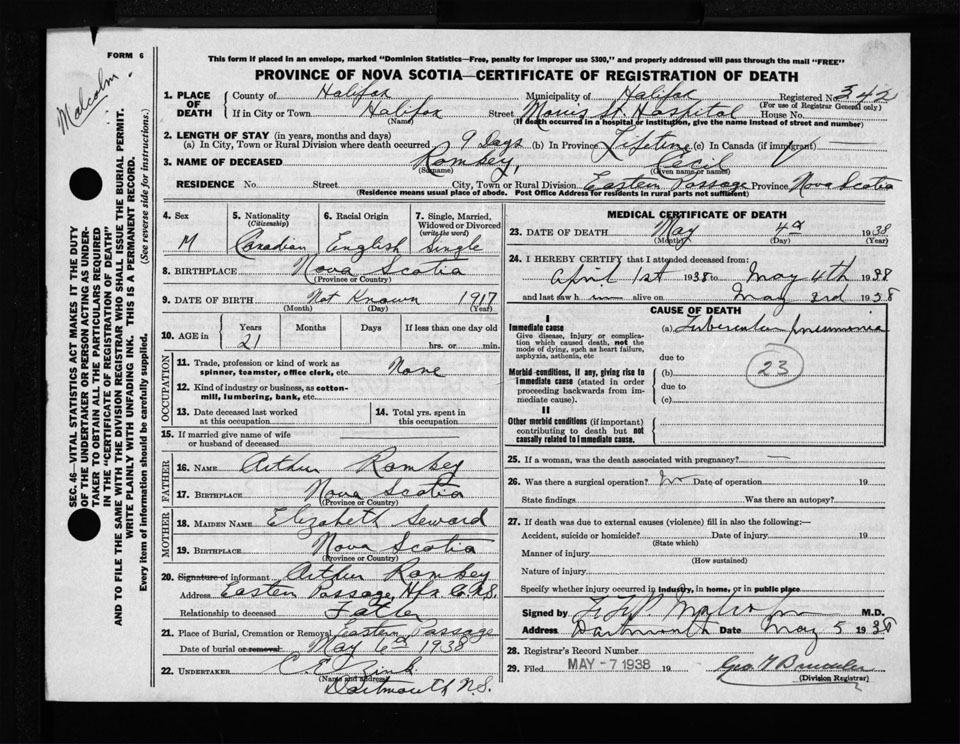 FORM 6
Malcolm.
This form if placed in an envelope, marked "Dominion Statistics—Free, penalty for improper use $300," and properly addressed will pass through the mail "FREE"
PROVINCE OF NOVA SCOTIA—CERTIFICATE OF REGISTRATION OF DEATH
1. PLACE OF DEATH County of Halifax Municipality of Halifax Registered No. 342
(For use of Registrar General only)
If in City or Town Halifax Street Morris St. Hospital House No.
(Name) (If death occurred in a hospital or institution, give the name instead of street and number)
2. LENGTH OF STAY (in years, months and days)
(a) In City, Town or Rural Division where death occurred 9 Days (b) In Province Lifetime (c) In Canada (if immigrant)
3. NAME OF DECEASED Romkey, Cecil
(Surname) (Given name or names)
RESIDENCE No. Street City, Town or Rural Division Eastern Passage Province Nova Scotia
(Residence means usual place of abode. Post Office Address for residents in rural parts not sufficient)
4. Sex M
5. Nationality (Citizenship) Canadian
6. Racial Origin English
7. Single, Married, Widowed or Divorced (write the word) Single
8. BIRTHPLACE Nova Scotia
(Province or Country)
9. DATE OF BIRTH Not Known 1917
(Month) (Day) (Year)
10. AGE in Years Months Days If less than one day old
21 hrs. or min.
OCCUPATION
11. Trade, profession or kind of work as spinner, teamster, office clerk, etc. None
12. Kind of industry or business, as cotton-mill, lumbering, bank, etc.
13. Date deceased last worked at this occupation
14. Total yrs. spent in this occupation
15. If married give name of wife or husband of deceased
FATHER
16. NAME Arthur Romkey
17. BIRTHPLACE Nova Scotia
(Province or Country)
MOTHER
18. MAIDEN NAME Elizabeth Seward
19. BIRTHPLACE Nova Scotia
(Province or Country)
20. Signature of informant Arthur Romkey
Address Eastern Passage, Hfx. Co. N.S.
Relationship to deceased Father
21. Place of Burial, Cremation or Removal Eastern Passage
Date of burial or removal May 6th 1938
22. UNDERTAKER C. E. Zink
(Name and address)
Dartmouth N.S.
MEDICAL CERTIFICATE OF DEATH
23. DATE OF DEATH May 4th 1938
(Month) (Day) (Year)
24. I HEREBY CERTIFY that I attended deceased from:
April 1st 1938 to May 4th 1938
and last saw h im alive on May 3rd 1938
CAUSE OF DEATH
I
Immediate cause
Give disease, injury or complication which caused death, not the mode of dying, such as heart failure, asphyxia, asthenia, etc
(a) Tubercular pneumonia
due to
Morbid conditions, if any, giving rise to immediate cause (stated in order proceeding backwards from immediate cause).
(b)
due to
(c)
23
II
Other morbid conditions (if important) contributing to death but not causally related to immediate cause.
25. If a woman, was the death associated with pregnancy?
26. Was there a surgical operation? No Date of operation 19
State findings Was there an autopsy?
27. If death was due to external causes (violence) fill in also the following:—
Accident, suicide or homicide? Date of injury 19
(State which)
Manner of injury
(How sustained)
Nature of injury
Specify whether injury occurred in industry, in home, or in public place
Signed by M.D.
Address Dartmouth Date May 5 1938
28. Registrar's Record Number
29. Filed MAY - 7 1938 19
(Division Registrar)
SEC. 46—VITAL STATISTICS ACT MAKES IT THE DUTY OF THE UNDERTAKER OR PERSON ACTING AS UNDERTAKER TO OBTAIN ALL THE PARTICULARS REQUIRED IN THE "CERTIFICATE OF REGISTRATION OF DEATH"
AND TO FILE THE SAME WITH THE DIVISION REGISTRAR WHO SHALL ISSUE THE BURIAL PERMIT.
WRITE PLAINLY WITH UNFADING INK. THIS IS A PERMANENT RECORD.
Every item of information should be carefully supplied. (See reverse side for instructions.)